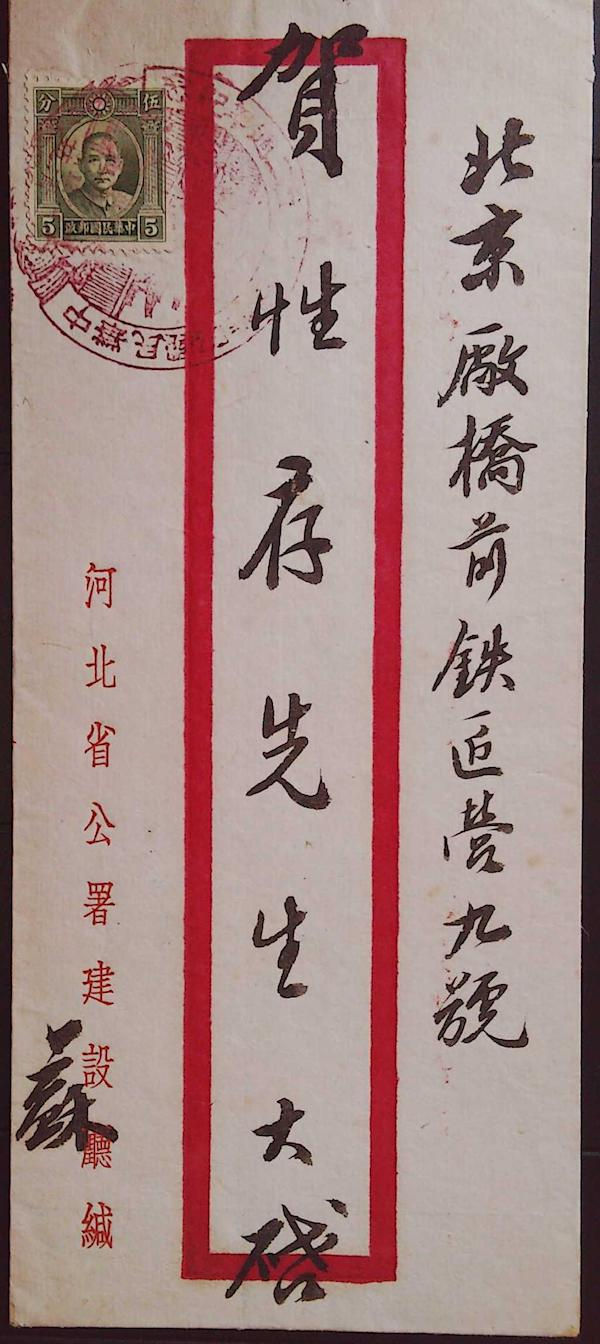 北京厰橋前鉄匠营九號
賀性存先生大啓
河北省公署建設廳緘
蘇
分 伍
5 政郵國民華中 5
中華民國